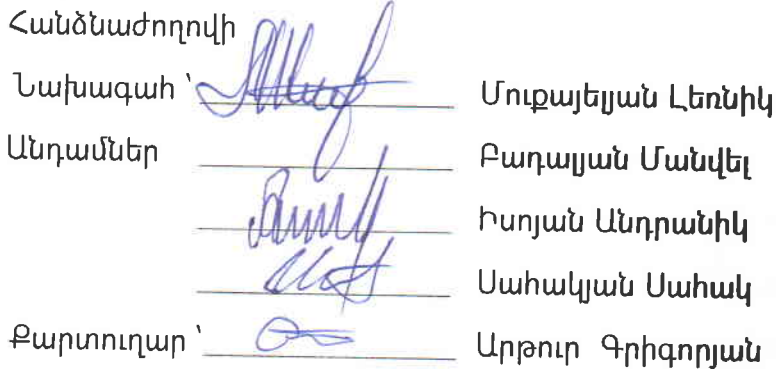 Հանձնաժողովի
Նախագահ ՝ Մուքայելյան Լեռնիկ
Անդամներ Բադալյան Մանվել
Իսոյան Անդրանիկ
Սահակյան Սահակ
Քարտուղար ՝ Արթուր Գրիգորյան